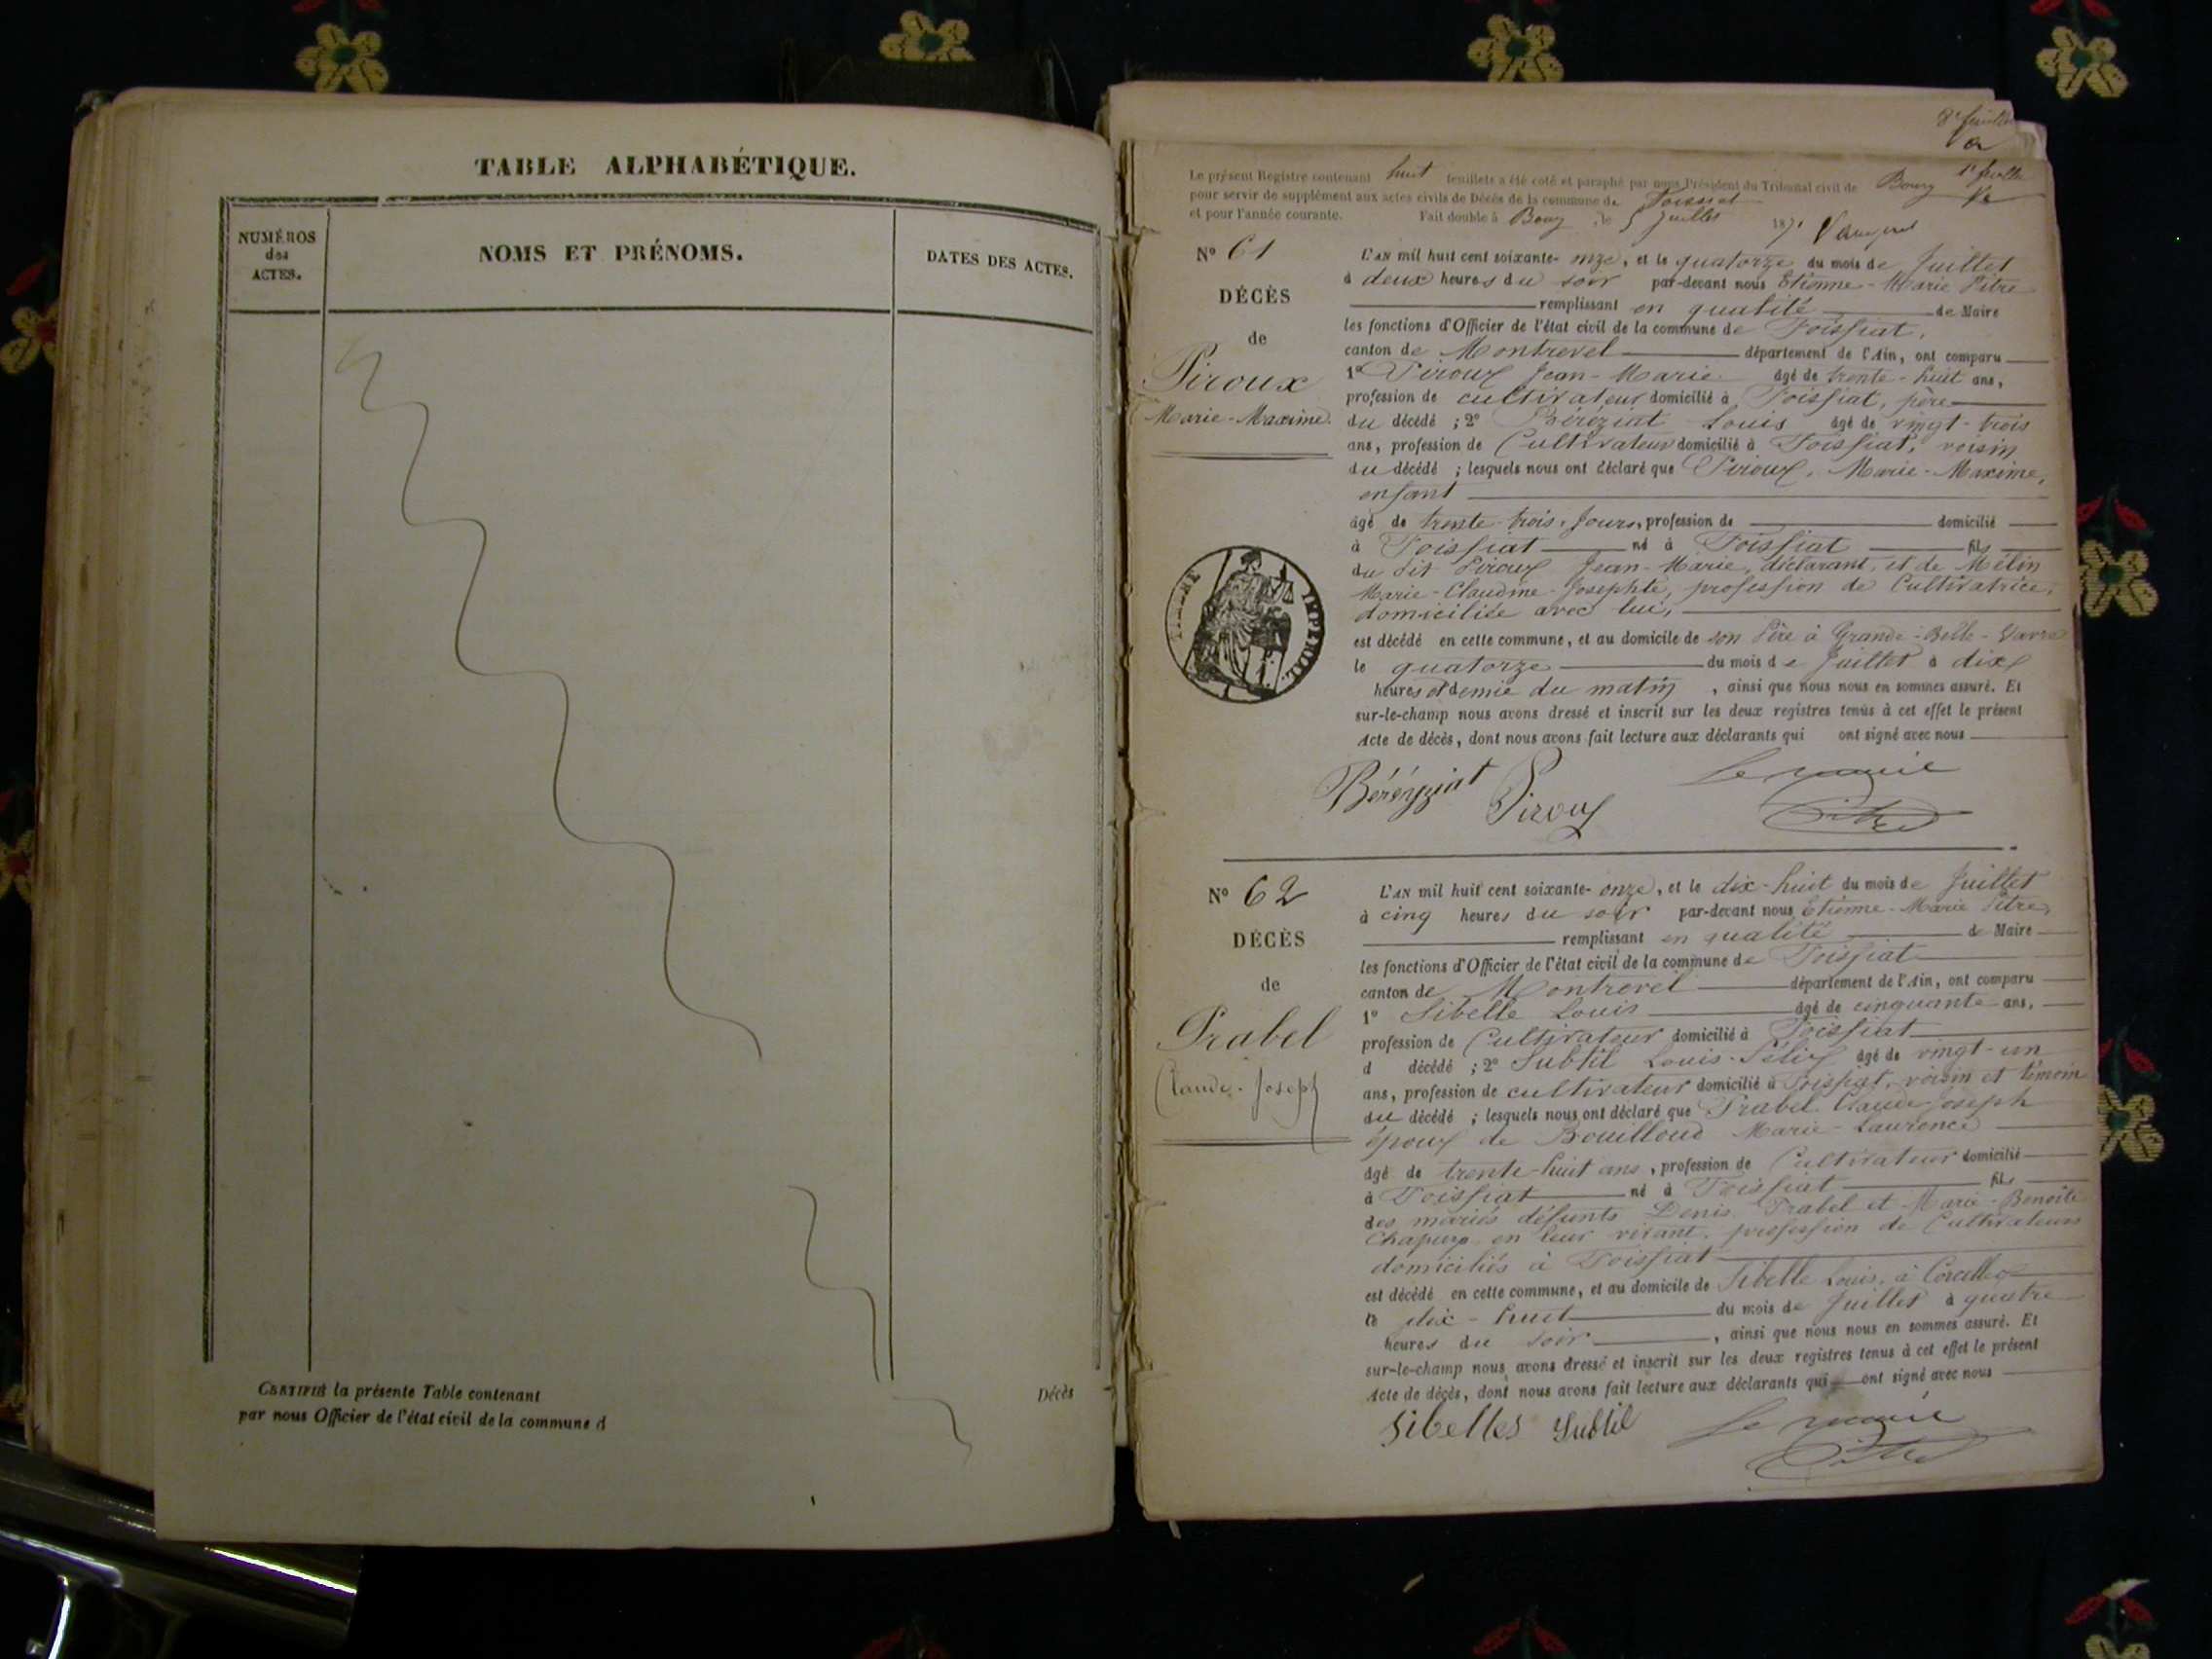 TABLE ALPHABÉTIQUE.
NUMÉROS
des
ACTES.
NOMS ET PRÉNOMS.
DATES DES ACTES.
CERTIFIÉ la présente Table contenant
par nous Officier de l'état civil de la commune d
Décès
8e feuillet
1er feuillet
Le présent Registre contenant huit feuillets a été coté et paraphé par nous Président du Tribunal civil de Bourg
pour servir de supplément aux actes civils de Décès de la commune de Foissiat
et pour l'année courante. Fait double à Bourg, le 5 Juillet 1871
N° 61
DÉCÈS
de
Piroux
Marie-Maxime.
L'AN mil huit cent soixante-onze, et le quatorze du mois de Juillet
à deux heures du soir par-devant nous Etienne-Marie Pitre
remplissant en qualité de Maire
les fonctions d'Officier de l'état civil de la commune de Foissiat,
canton de Montrevel département de l'Ain, ont comparu
1° Piroux Jean-Marie âgé de trente-huit ans,
profession de cultivateur domicilié à Foissiat, père
du décédé ; 2° Béréziat Louis âgé de vingt-trois
ans, profession de Cultivateur domicilié à Foissiat, voisin
du décédé ; lesquels nous ont déclaré que Piroux, Marie-Maxime,
enfant
âgé de trente-trois Jours, profession de domicilié
à Foissiat né à Foissiat fils
du dit Piroux Jean-Marie, déclarant, et de Mélin
Marie-Claudine-Josephte, profession de Cultivatrice,
domiciliée avec lui,
est décédé en cette commune, et au domicile de son Père à Grande-Belle-Vavre
le quatorze du mois de Juillet à dix
heures et demie du matin, ainsi que nous nous en sommes assuré. Et
sur-le-champ nous avons dressé et inscrit sur les deux registres tenus à cet effet le présent
Acte de décès, dont nous avons fait lecture aux déclarants qui ont signé avec nous
TIMBRE IMPÉRIAL.
Béréziat Piroux Le maire
Pitre
N° 62
DÉCÈS
de
Prabel
Claude-Joseph
L'AN mil huit cent soixante-onze, et le dix-huit du mois de Juillet
à cinq heures du soir par-devant nous Etienne-Marie Pitre,
remplissant en qualité de Maire
les fonctions d'Officier de l'état civil de la commune de Foissiat
canton de Montrevel département de l'Ain, ont comparu
1° Sibelle Louis âgé de cinquante ans,
profession de Cultivateur domicilié à Foissiat
d décédé ; 2° Subtil Louis-Félix âgé de vingt-un
ans, profession de cultivateur domicilié à Foissiat, voisin et témoin
du décédé ; lesquels nous ont déclaré que Prabel Claude Joseph
époux de Bouilloud Marie-Laurence
âgé de trente-huit ans, profession de Cultivateur domicilié
à Foissiat né à Foissiat fils
des mariés défunts Denis Prabel et Marie-Benoîte
en leur vivant, profession de Cultivateurs
domiciliés à Foissiat
est décédé en cette commune, et au domicile de Sibelle Louis, à Corcelles
le dix-huit du mois de Juillet à quatre
heures du soir, ainsi que nous nous en sommes assuré. Et
sur-le-champ nous avons dressé et inscrit sur les deux registres tenus à cet effet le présent
Acte de décès, dont nous avons fait lecture aux déclarants qui ont signé avec nous
Sibelles Subtil Le maire
Pitre